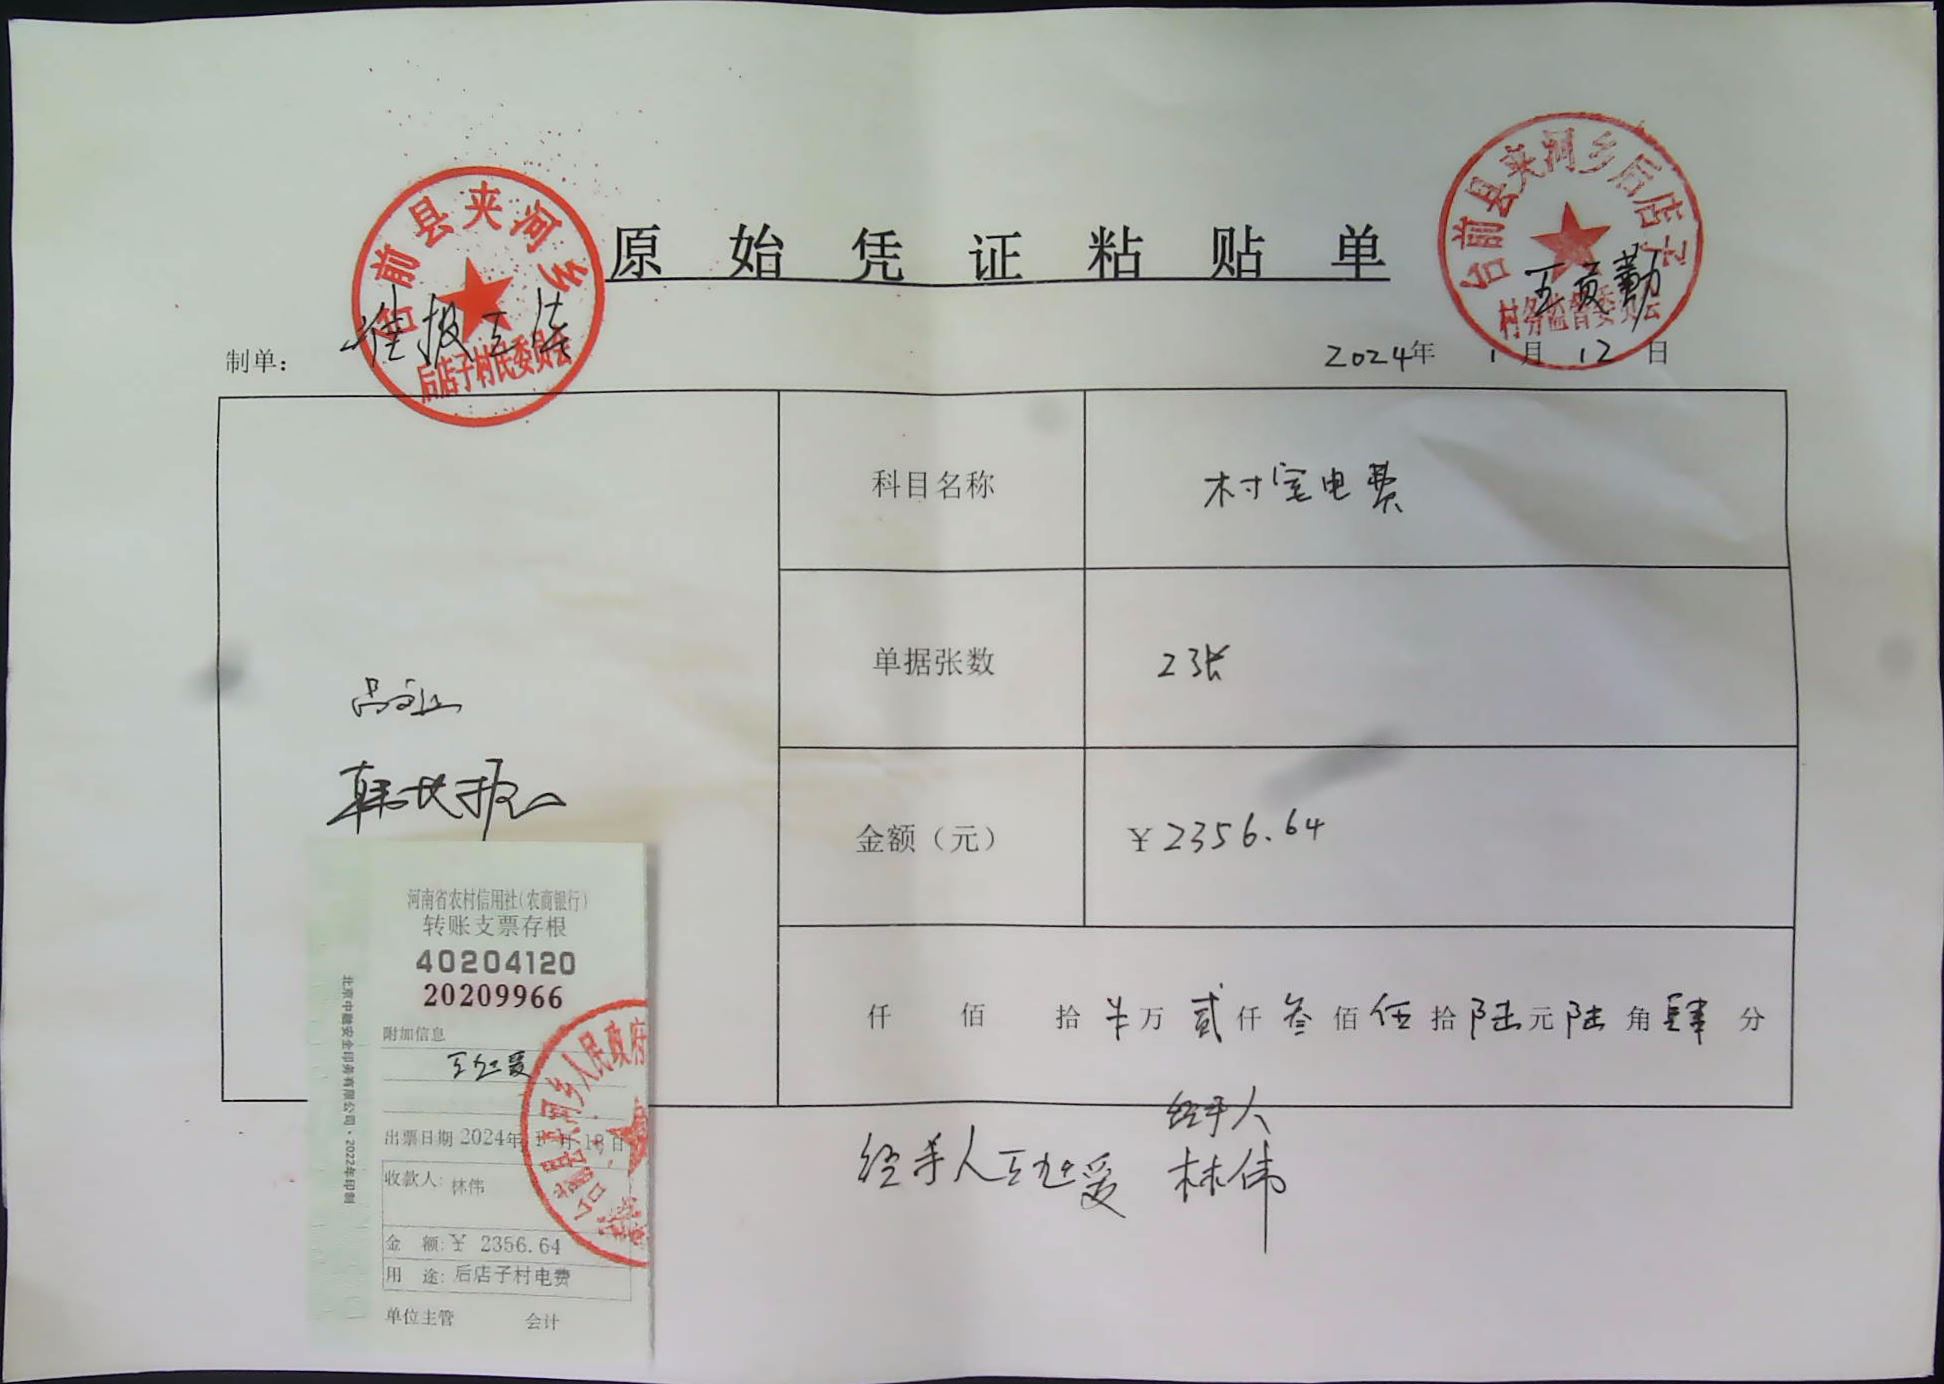 原始凭证粘贴单
台前县夹河乡
后店子村民委员会
台前县夹河乡后店子
村务监督委员会
制单：
准报
2024年 1月12日
科目名称 村室电费
单据张数 23张
金额（元） ¥2356.64
仟 佰 拾 万贰仟叁佰伍拾陆元陆角肆分
河南省农村信用社(农商银行)
转账支票存根
40204120
20209966
附加信息
出票日期 2024年
收款人: 林伟
金 额:¥ 2356.64
用 途: 后店子村电费
单位主管 会计
北京中融安全印务有限公司·2022年印制
台前县夹河乡人民政府
经手人
经手人
林伟